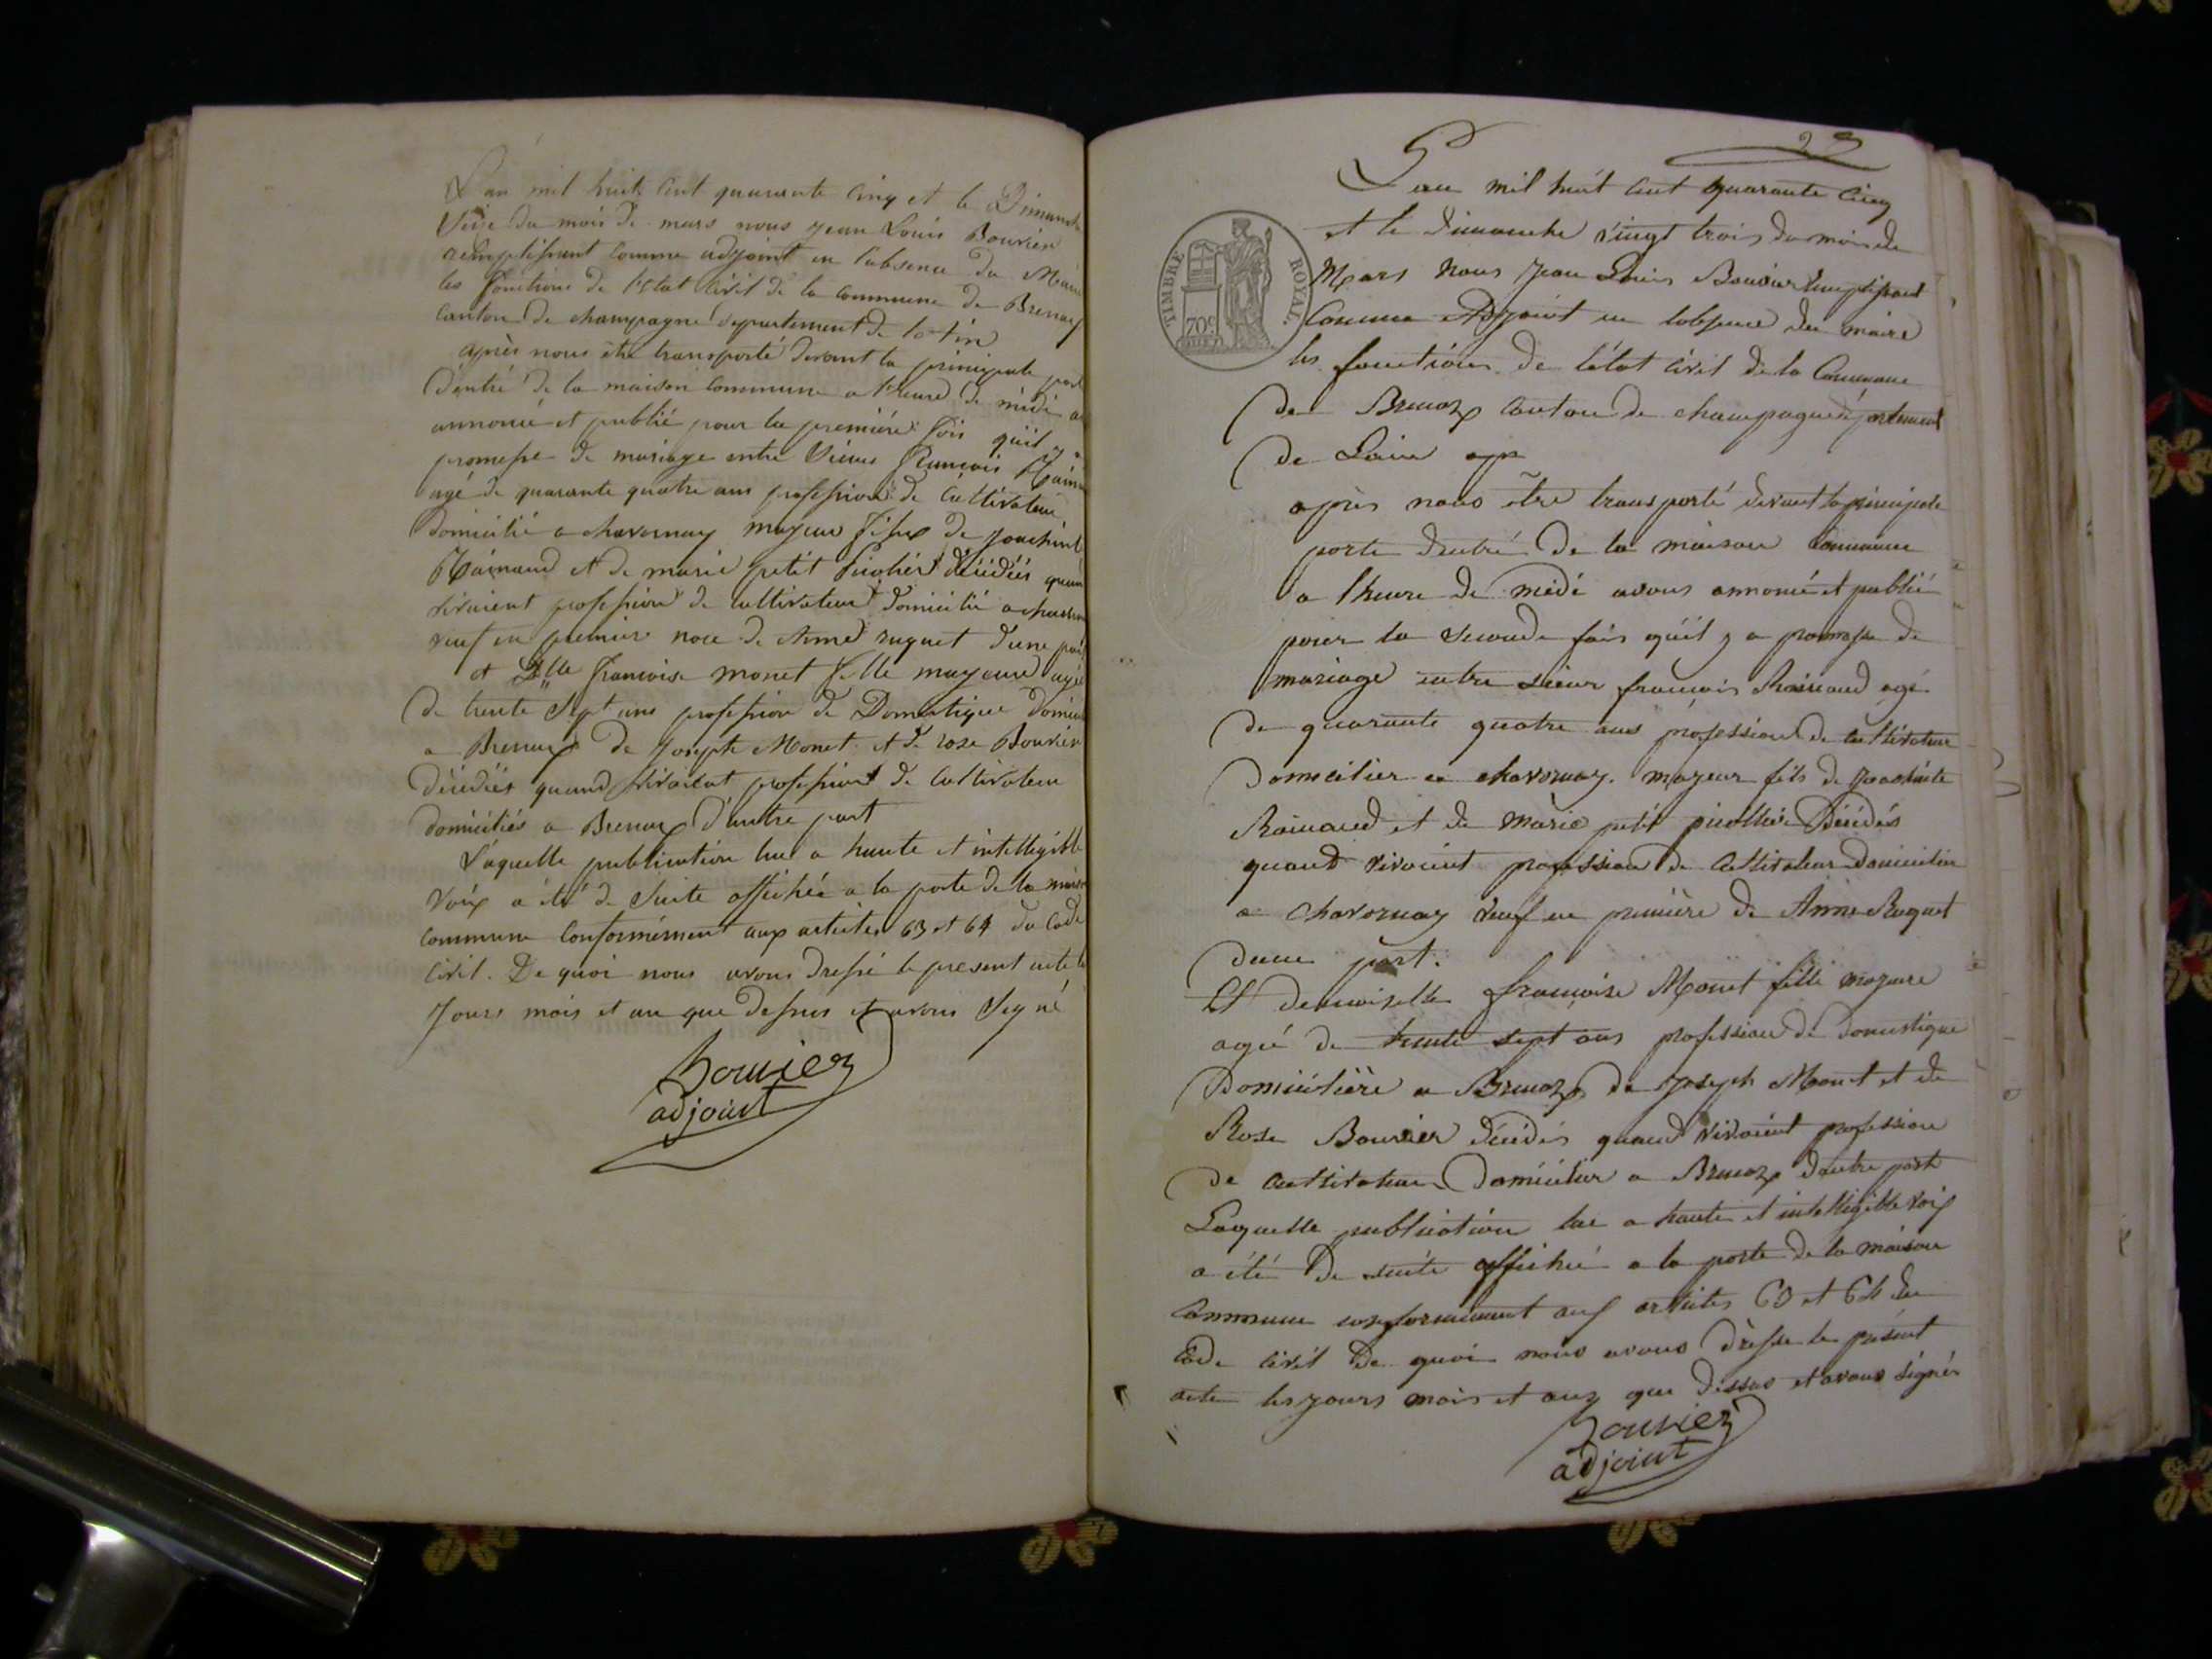 L'an mil huit cent quarante cinq et le Dimanche
Seize du mois de mars nous jean Louis Bouvier
remplissant comme adjoint en l'absence du Maire
les fonctions de l'état civil de la commune de Brenaz
canton de champagne département de l'ain
après nous être transporté devant la principale porte
d'entré de la maison commune a l'heure de midi
annoncé et publié pour la première fois qu'il y a
promesse de mariage entre Sieur François Rainaud
agé de quarante quatre ans profession de Cultivateur
domicilié a chavornay majeur fils de joachint
Rainaud et de marie petit picolier décédés quand
vivaient profession de cultivateur domicilié a
veuf en premier noce de Anne ruguet d'une part
et Dlle françoise monet fille majeure agée
de trente Sept ans profession de Domestique
a Brenaz de joseph Monet et de rose Bouvier
décédés quand vivaient profession de Cultivateur
domiciliés a Brenaz d'autre part
Laquelle publication lue a haute et intelligible
voix a été de Suite affichée a la porte de la maison
commune Conformément aux articles 63 et 64 du Code
civil. De quoi nous avons dressé le present acte le
jours mois et an que dessus et avons Signé
bouvier
adjoint
23
L'an mil huit cent quarante cinq
et le dimanche vingt trois du mois de
Mars nous Jean Louis Bouvier remplissant
Comme Adjoint en l'absence du maire
les fonctions de l'état civil de la Commune
de Brenaz canton de champagne département
de Lain apr
après nous être transporté devant la principale
porte dentré de la maison commune
a lheure de midi avons annoncé et publié
pour la seconde fois qu'il y a promesse de
mariage entre sieur françois Rainaud agé
de quarante quatre ans profession de cultivateur
domicilier a chavornay. majeur fils de joachinte
Rainaud et de marie petit picollier Décédés
quand vivoient profession de Cultivateur
a chavornay veuf en première de Anne Ruguet
dune part.
Et demoiselle françoise Monet fille majeure
agée de trente sept ans profession de Domestique
Domicilière a Brenaz de joseph Monet et de
Rose Bouvier décédés quand vivoient profession
de cultivateur Domicilier a Brenaz dautre part
Laquelle publication lue a haute et intelligible voix
a été de suite affichée a la porte de la maison
Commune conformément aux articles 63 et 64 du
Code civil De quoi nous avons dresse le présent
acte les jours mois et ans que dessus et avons signés
bouvier
adjoint
TIMBRE
ROYAL.
70c